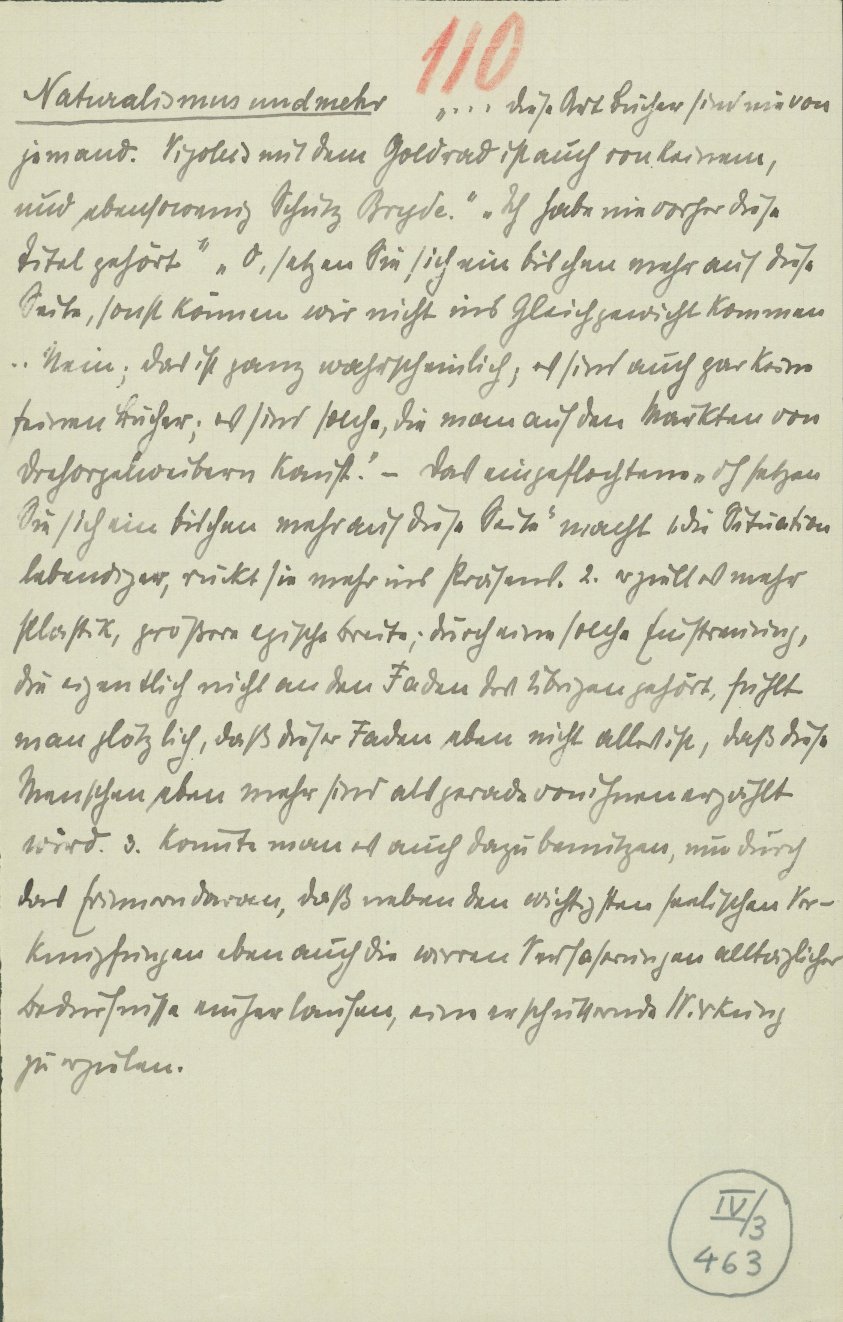 110
Naturalismus und mehr „... diese Art Bücher sind nie von
jemand. Sigoleis mit dem Goldrad ist auch von keinem,
und ebensowenig Schütz Bryde." „Ich habe nie vorher diese
Titel gehört" „O, setzen Sie sich ein bischen mehr auf diese
Seite, sonst können wir nicht ins Gleichgewicht kommen
.. Nein; das ist ganz wahrscheinlich, es sind auch gar keine
feinen Bücher; es sind solche, die man auf den Märkten von
Drehorgelweibern kauft." – Das eingeflochtene „Oh setzen
Sie sich ein bischen mehr auf diese Seite" macht 1. die Situation
lebendiger, rückt sie mehr ins Präsens. 2. erzielt es mehr
Plastik, größere epische Breite; durch eine solche Einstreuung,
die eigentlich nicht an den Faden des Übrigen gehört, fühlt
man plötzlich, daß dieser Faden eben nicht alles ist, daß diese
Menschen eben mehr sind als gerade von ihnen erzählt
wird. 3. könnte man es auch dazu benützen, um durch
das Erinnern daran, daß neben den wichtigsten seelischen Ver-
knüpfungen eben auch die wirren Verfaserungen alltäglicher
Bedürfnisse einherlaufen, eine erschütternde Wirkung
zu erzielen.
IV/3
463